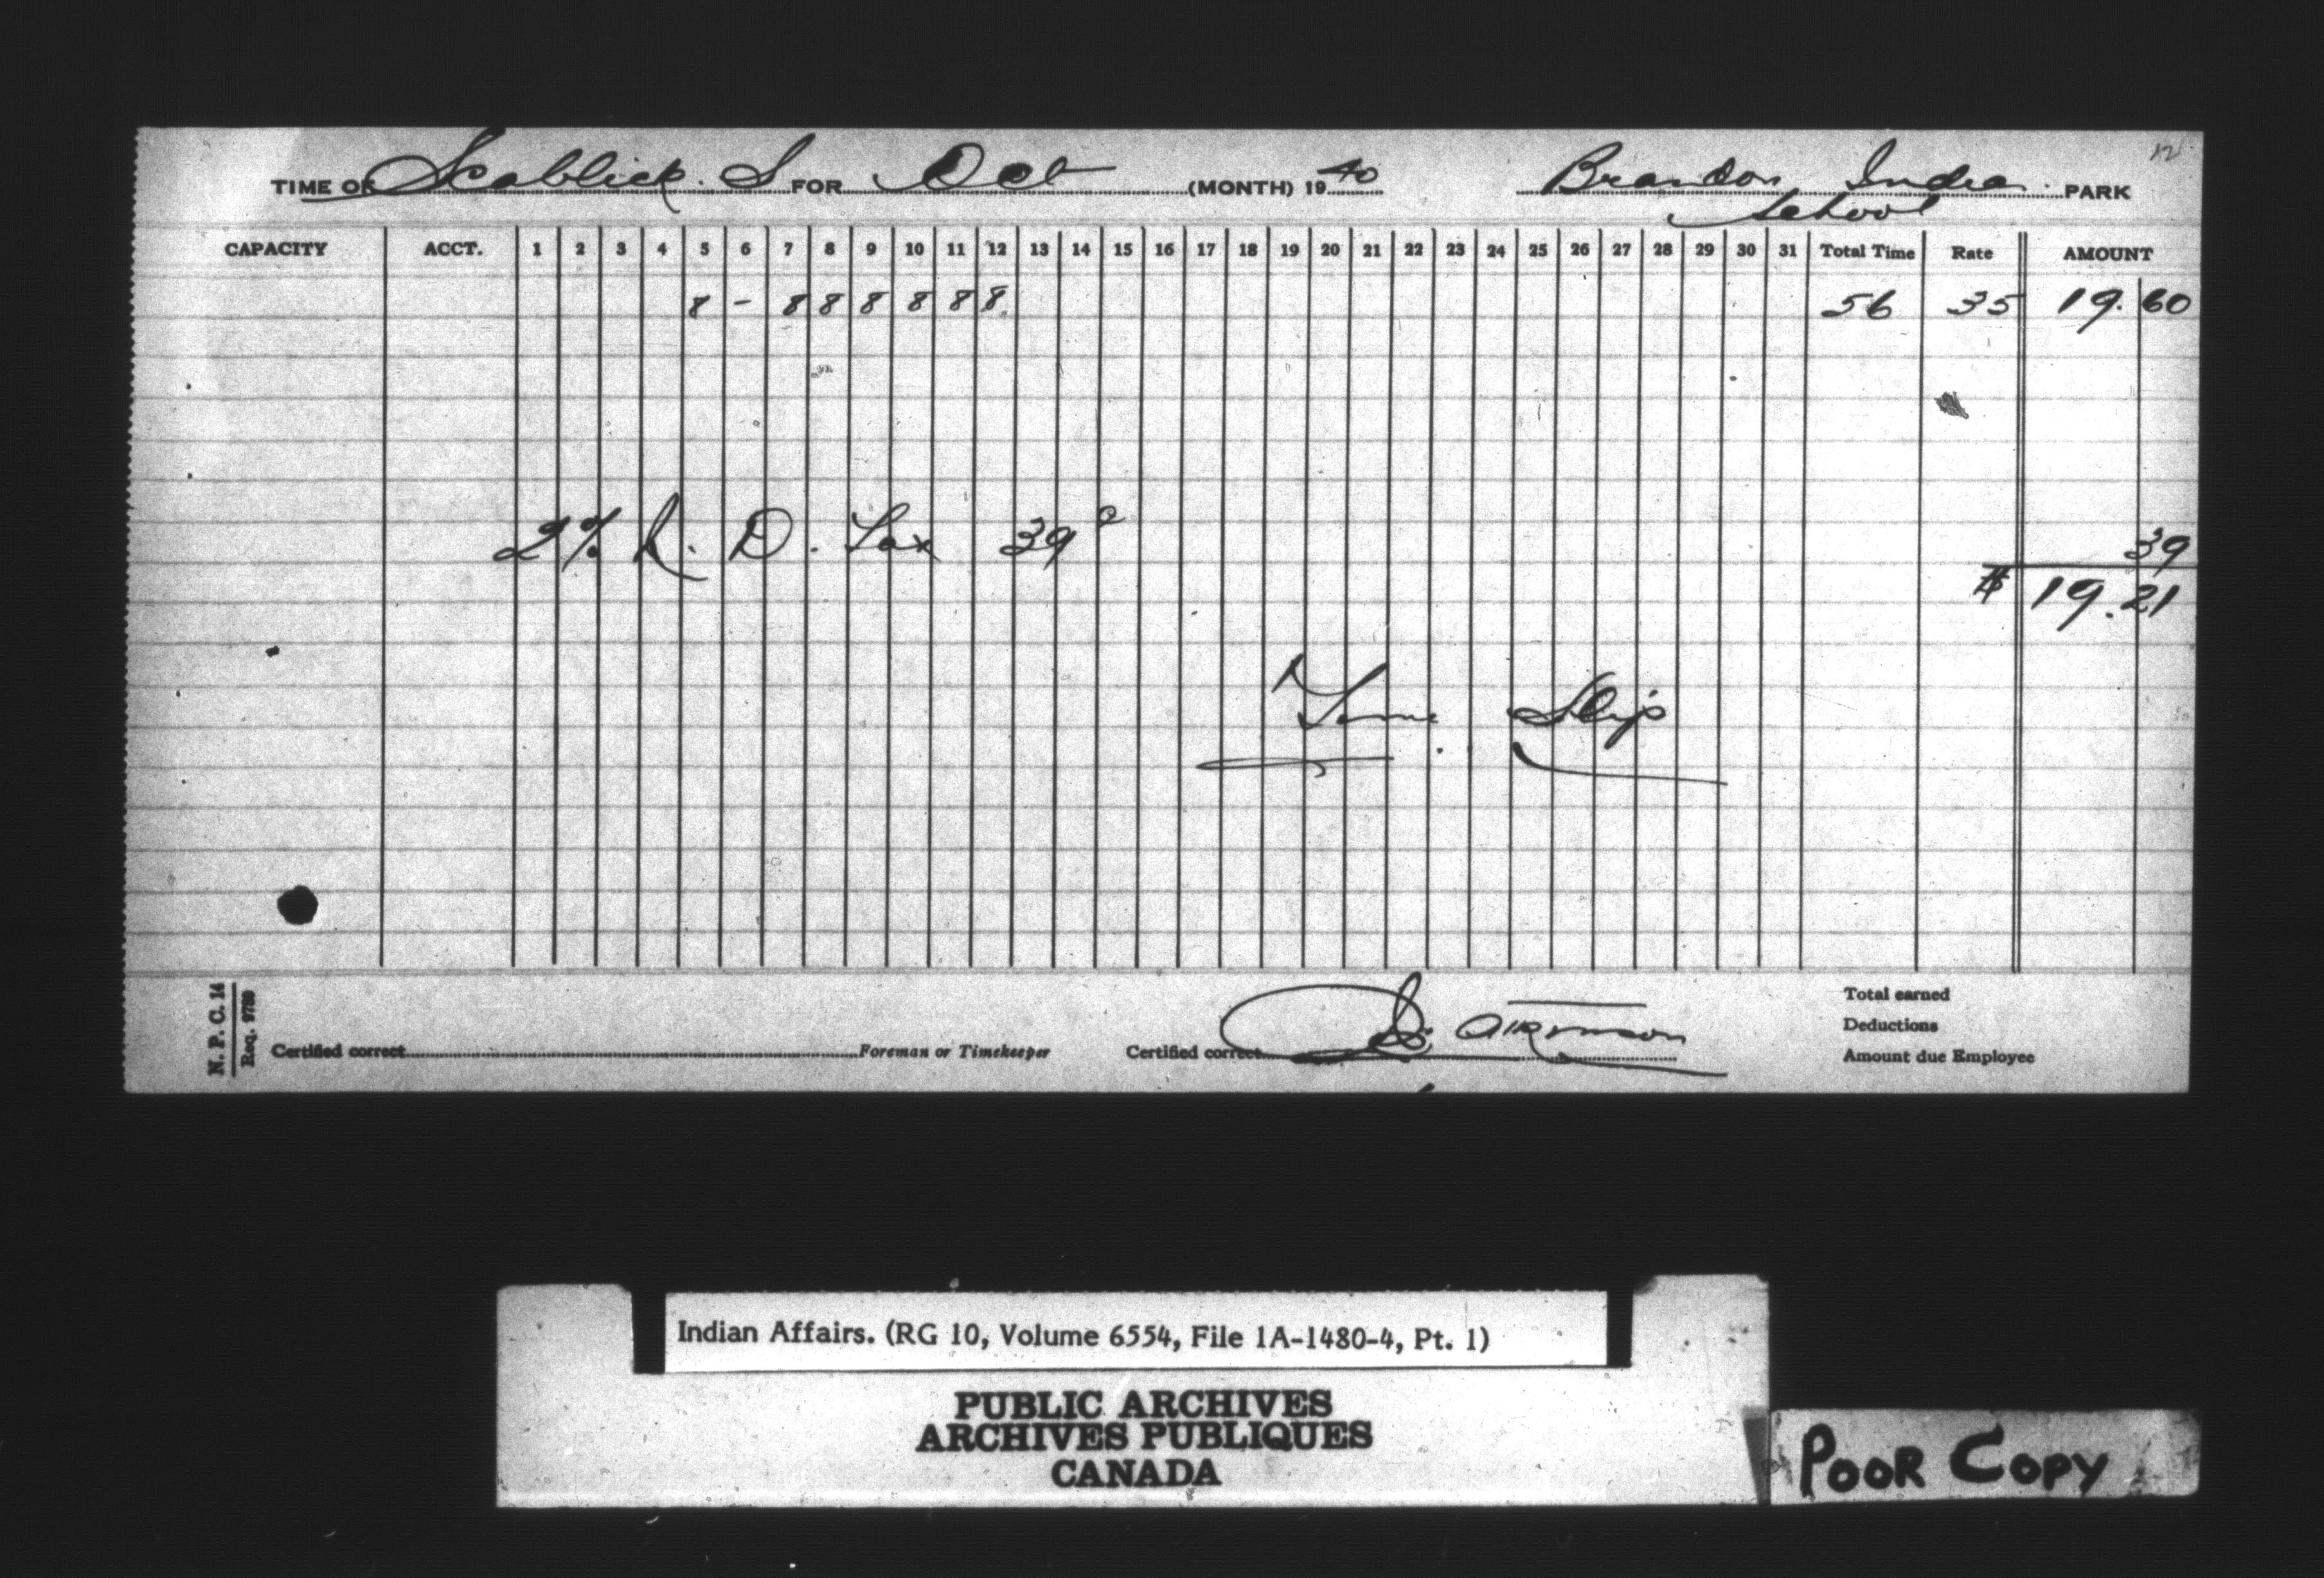 12
TIME OF Scablick. S FOR Oct (MONTH) 1940 Brandon India PARK
School
CAPACITY ACCT. 1 2 3 4 5 6 7 8 9 10 11 12 13 14 15 16 17 18 19 20 21 22 23 24 25 26 27 28 29 30 31 Total Time Rate AMOUNT
8 - 8 8 8 8 8 8. 56 35 19.60
2% R. D. Tax 39c 39
$ 19.21
Time Slip
N. P. C. 14
Req. 9789
Total earned
Deductions
Certified correct Foreman or Timekeeper Certified correct Atkinson Amount due Employee
Indian Affairs. (RG 10, Volume 6554, File 1A-1480-4, Pt. 1)
PUBLIC ARCHIVES
ARCHIVES PUBLIQUES
CANADA
POOR COPY